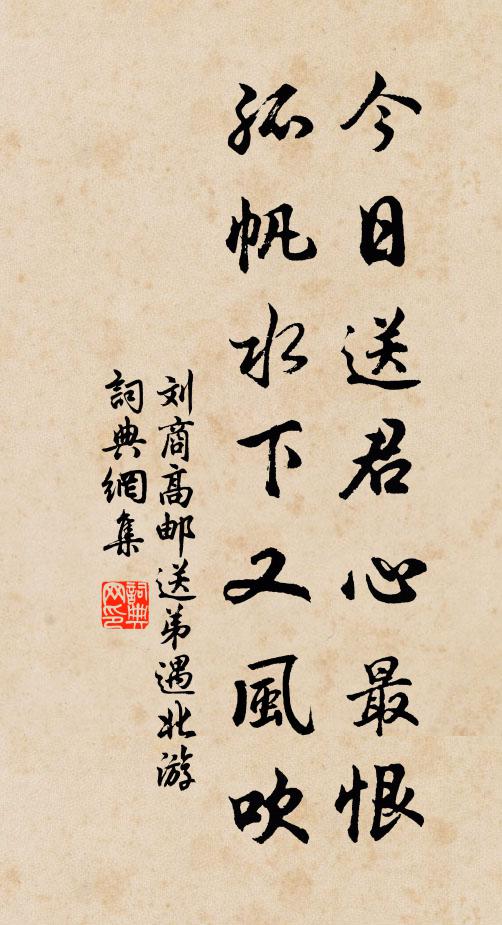 今日送君心最恨
孤帆水下又風吹
刘商高邮送弟遇北游
詞典網集
詞典网印